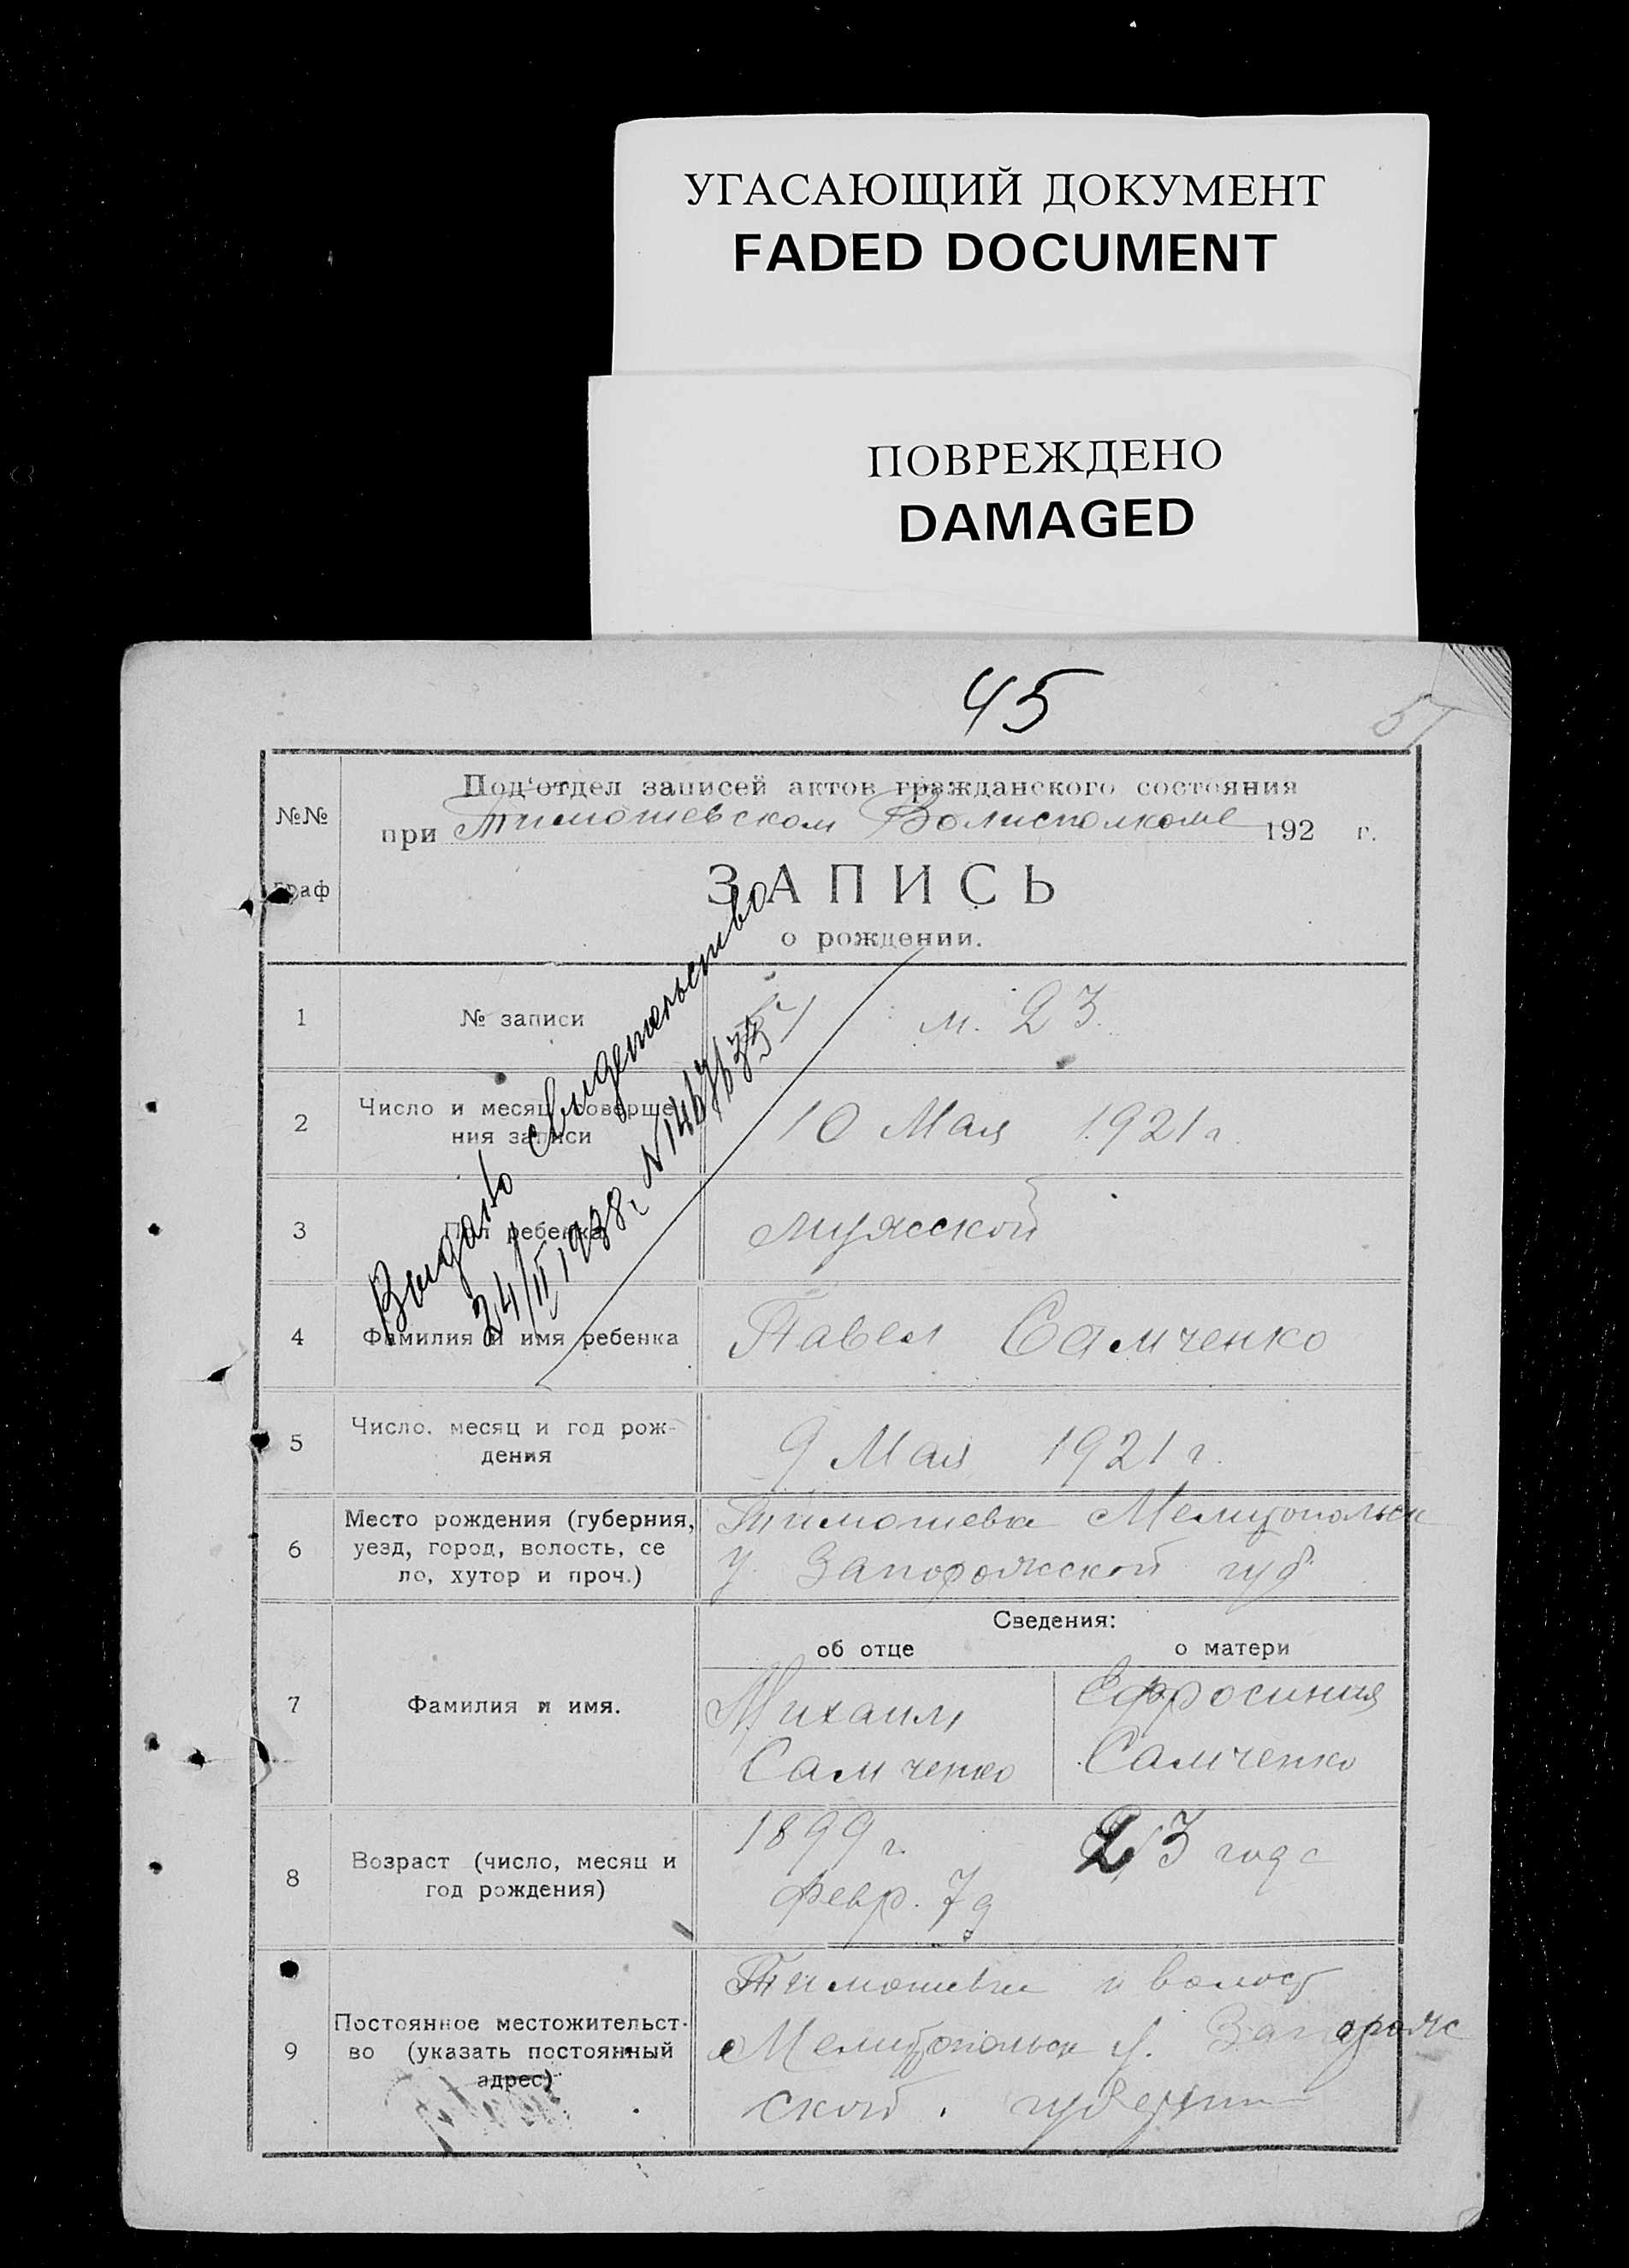 УГАСАЮЩИЙ ДОКУМЕНТ
FADED DOCUMENT
ПОВРЕЖДЕНО
DAMAGED
45
51
№№
граф
Под'отдел записей актов гражданского состояния
при Тимошевском Волисполкоме 192 г.
ЗАПИСЬ
о рождении.
Выдано свидетельство
24/II 1938г. №
1
№ записи
51 м. 23.
2
Число и месяц соверше-
ния записи
10 Мая 1921 г.
3
Пол ребенка
мужской
4
Фамилия и имя ребенка
Павел Самченко
5
Число, месяц и год рож-
дения
9 Мая 1921 г.
6
Место рождения (губерния,
уезд, город, волость, се
ло, хутор и проч.)
Тимошевка Мелитопольск
у. Запорожской губ.
Сведения:
об отце
о матери
7
Фамилия и имя.
Михаил
Самченко
Ефросиния
Самченко
8
Возраст (число, месяц и
год рождения)
1899 г.
февр. 7 д
23 года
9
Постоянное местожительст-
во (указать постоянный
адрес)
Тимошевка и волост
Мелитопольск у. Запорожс
ской губернии